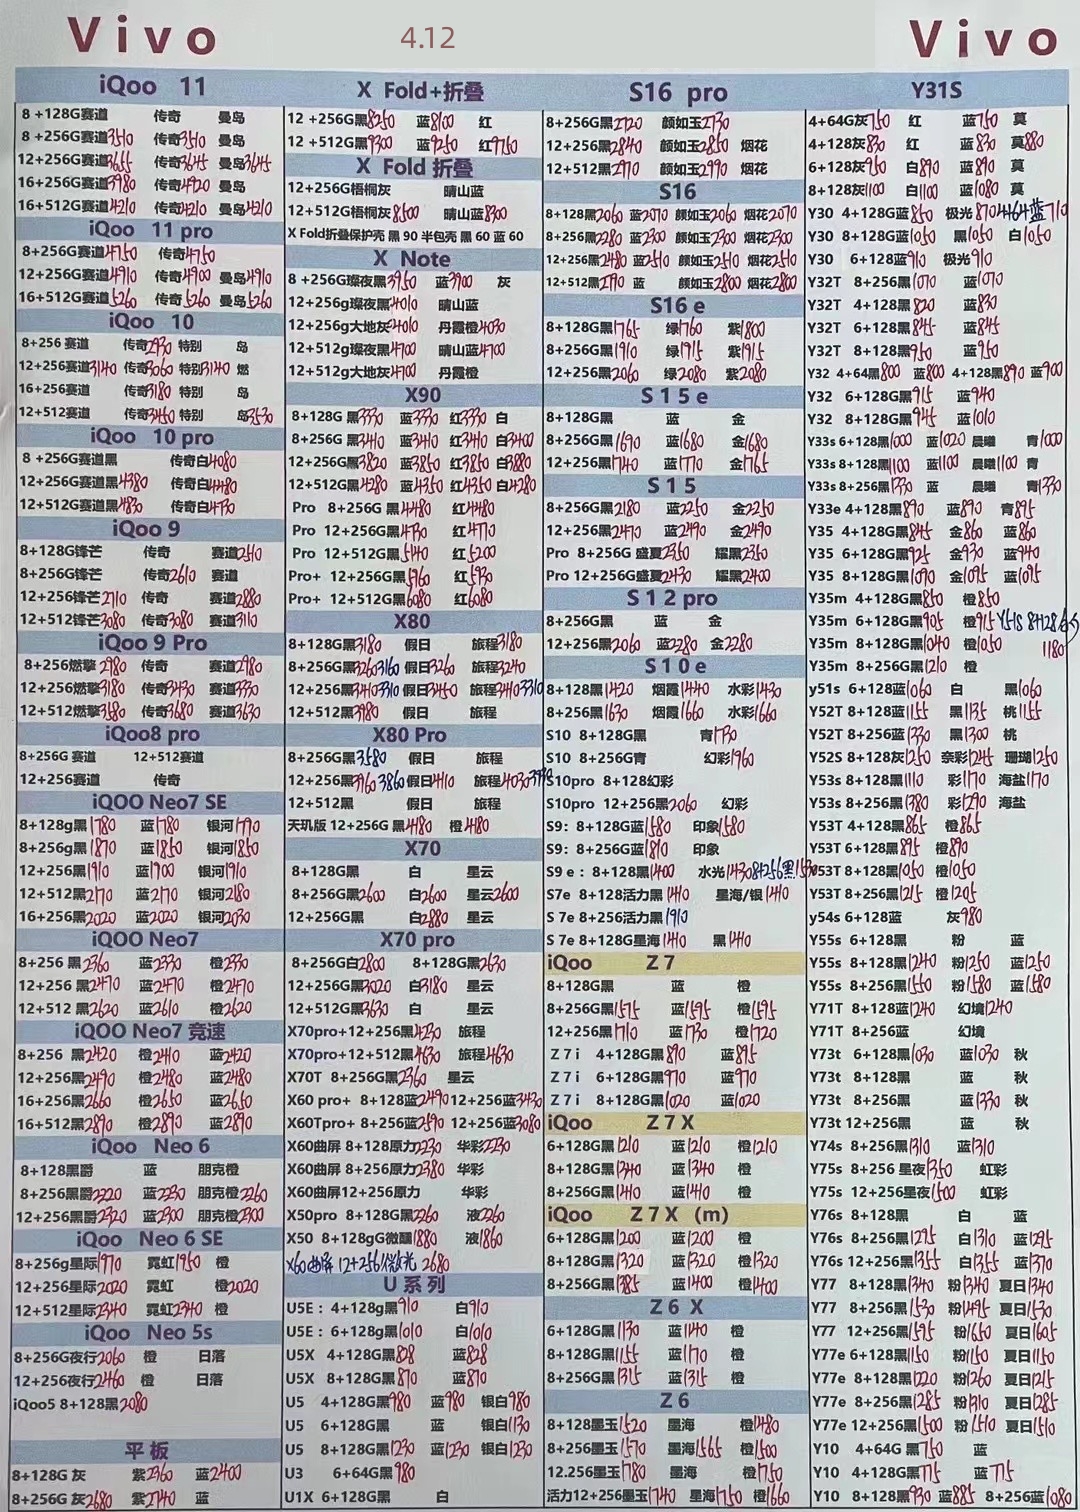 Vivo 4.12 Vivo
iQoo 11
8 +128G赛道 传奇 曼岛
8 +256G赛道3510 传奇3510 曼岛
12+256G赛道3665 传奇3645 曼岛3645
16+256G赛道3980 传奇4920 曼岛
16+512G赛道4210 传奇4210 曼岛4210
iQoo 11 pro
8+256G赛道4750 传奇4750
12+256G赛道4910 传奇4900 曼岛4910
16+512G赛道5260 传奇5260 曼岛5260
iQoo 10
8+256 赛道 传奇2930 特别 岛
12+256赛道3140 传奇3060 特别3140 燃
16+256赛道 传奇3180 特别 岛
12+512赛道 传奇3450 特别 岛3530
iQoo 10 pro
8 +256G赛道黑 传奇白4080
12+256G赛道黑4380 传奇白4480
12+512G赛道黑4830 传奇白4730
iQoo 9
8+128G锋芒 传奇 赛道2510
8+256G锋芒 传奇2610 赛道
12+256锋芒2710 传奇 赛道2880
12+512锋芒3080 传奇3080 赛道3110
iQoo 9 Pro
8+256燃擎2980 传奇 赛道2980
12+256燃擎3180 传奇3430 赛道3330
12+512燃擎3580 传奇3680 赛道3630
iQoo8 pro
8+256G 赛道 12+512赛道
12+256赛道 传奇
iQOO Neo7 SE
8+128g黑1780 蓝1780 银河1790
8+256g黑1870 蓝1850 银河1850
12+256黑1910 蓝1900 银河1910
12+512黑2170 蓝2170 银河2180
16+256黑2020 蓝2020 银河2030
iQOO Neo7
8+256 黑2360 蓝2330 橙2330
12+256 黑2470 蓝2470 橙2470
12+512 黑2620 蓝2610 橙2620
iQOO Neo7 竞速
8+256 黑2420 橙2410 蓝2420
12+256黑2490 橙2480 蓝2480
16+256黑2660 橙2650 蓝2650
16+512黑2890 橙2890 蓝2890
iQoo Neo 6
8+128黑爵 蓝 朋克橙
8+256黑爵2220 蓝2230 朋克橙2260
12+256黑爵2320 蓝2300 朋克橙2300
iQoo Neo 6 SE
8+256g星际1970 霓虹1950 橙
12+256星际2020 霓虹 橙2020
12+512星际2340 霓虹2340 橙
iQoo Neo 5s
8+256G夜行2060 橙 日落
12+256夜行2460 橙 日落
iQoo5 8+128黑2080
平板
8+128G 灰 紫2360 蓝2400
8+256G 灰2680 紫2740 蓝
X Fold+折叠
12 +256G黑8250 蓝8100 红
12 +512G黑9300 蓝9250 红9750
X Fold 折叠
12+256G梧桐灰 晴山蓝
12+512G梧桐灰8500 晴山蓝8300
X Fold折叠保护壳 黑 90 半包壳 黑 60 蓝 60
X Note
8 +256G璨夜黑3950 蓝3900 灰
12+256g璨夜黑4010 晴山蓝
12+256g大地灰4010 丹霞橙4030
12+512g璨夜黑4700 晴山蓝4700
12+512g大地灰4700 丹霞橙
X90
8+128G 黑3330 蓝3330 红3330 白
8+256G 黑3410 蓝3410 红3410 白3400
12+256G黑3820 蓝3850 红3850 白3880
12+512G黑4280 蓝4350 红4350 白4280
Pro 8+256G 黑4480 红4480
Pro 12+256G黑4730 红4770
Pro 12+512G黑5140 红5200
Pro+ 12+256G黑5960 红5930
Pro+ 12+512G黑6080 红6080
X80
8+128G黑3180 假日 旅程3180
8+256G黑3260 3160 假日3260 旅程3240
12+256黑3410 3310 假日3450 旅程3410 3310
12+512黑3980 假日 旅程
X80 Pro
8+256G黑3580 假日 旅程
12+256黑3960 3860 假日4110 旅程4030
12+512黑 假日 旅程
天玑版 12+256G 黑4180 橙4180
X70
8+128G黑 白 星云
8+256G黑2600 白2600 星云2600
12+256G黑 白2880 星云
X70 pro
8+256G白2800 8+128G黑2630
12+256G黑3020 白3180 星云
12+512G黑3630 白 星云
X70pro+12+256黑4230 旅程
X70pro+12+512黑4630 旅程4630
X70T 8+256G黑2360 星云
X60 pro+ 8+128蓝2490 12+256蓝3430
X60Tpro+ 8+256蓝2590 12+256蓝3080
X60曲屏 8+128原力2230 华彩2230
X60曲屏 8+256原力2380 华彩
X60曲屏12+256原力 华彩
X50pro 8+128G黑2260 液2260
X50 8+128gG微醺1880 液1860
X60曲屏 12+256 微光 2680
U 系列
U5E：4+128g黑910 白910
U5E：6+128g黑1010 白1010
U5X 4+128G黑828 蓝828
U5X 8+128G黑870 蓝870
U5 4+128G黑980 蓝980 银白980
U5 6+128G黑 蓝 银白1130
U5 8+128G黑1230 蓝1230 银白1230
U3 6+64G黑980
U1X 6+128G黑 白
S16 pro
8+256G黑2720 颜如玉2730
12+256黑2840 颜如玉2850 烟花
12+512黑2970 颜如玉2990 烟花
S16
8+128黑2060 蓝2070 颜如玉2060 烟花2070
8+256黑2280 蓝2300 颜如玉2300 烟花2300
12+256黑2480 蓝2510 颜如玉2510 烟花2510
12+512黑2790 蓝 颜如玉2800 烟花2800
S16 e
8+128G黑1765 绿1760 紫1800
8+256G黑1910 绿1915 紫1915
12+256黑2060 绿2080 紫2080
S 1 5 e
8+128G黑 蓝 金
8+256G黑1670 蓝1680 金1680
12+256黑1740 蓝1770 金1765
S 1 5
8+256G黑2180 蓝2250 金2250
12+256黑2470 蓝2490 金2490
Pro 8+256G 盛夏2350 耀黑2350
Pro 12+256G盛夏2430 耀黑2400
S 1 2 pro
8+256G黑 蓝 金
12+256黑2060 蓝2280 金2280
S 1 0 e
8+128黑1420 烟霞1440 水彩1430
8+256黑1630 烟霞1660 水彩1660
S10 8+128G黑 青1730
S10 8+256G青 幻彩1960
S10pro 8+128幻彩
S10pro 12+256黑2060 幻彩
S9：8+128G蓝1580 印象1580
S9：8+256G蓝1810 印象
S9 e：8+128黑1400 水光1430 8+256黑1530
S7e 8+128活力黑1410 星海/银1410
S 7e 8+256活力黑1910
S 7e 8+128G星海1410 黑1410
iQoo Z 7
8+128G黑 蓝 橙
8+256G黑1575 蓝1595 橙1595
12+256黑1710 蓝1730 橙1720
Z 7 i 4+128G黑890 蓝895
Z 7 i 6+128G黑970 蓝970
Z 7 i 8+128G黑1020 蓝1020
iQoo Z 7 X
6+128G黑1210 蓝1210 橙1210
8+128G黑1340 蓝1340 橙
8+256G黑1410 蓝1410 橙
iQoo Z 7 X (m)
6+128G黑1200 蓝1200 橙
8+128G黑1320 蓝1320 橙1320
8+256G黑1385 蓝1400 橙1400
Z 6 X
6+128G黑1130 蓝1140 橙
8+128G黑1155 蓝1170 橙
8+256G黑1315 蓝1315 橙
Z 6
8+128墨玉1520 墨海 橙1480
8+256墨玉1570 墨海1565 橙1500
12.256墨玉1780 墨海 橙1750
活力12+256墨玉1740 星海1750 橙1660
Y31S
4+64G灰750 红 蓝750 莫
4+128灰830 红 蓝830 莫880
6+128灰950 白890 蓝890 莫
8+128灰1100 白1100 蓝1080 莫
Y30 4+128G蓝850 极光870 4+64蓝710
Y30 8+128G蓝1050 黑1050 白1050
Y30 6+128蓝910 极光910
Y32T 8+256黑1070 蓝1070
Y32T 4+128黑820 蓝830
Y32T 6+128黑845 蓝845
Y32T 8+128黑950 蓝950
Y32 4+64黑800 蓝800 4+128黑890 蓝900
Y32 6+128G黑915 蓝940
Y32 8+128G黑945 蓝1010
Y33s 6+128黑1000 蓝1020 晨曦 青1000
Y33s 8+128黑1100 蓝1100 晨曦1100 青
Y33s 8+256黑1330 蓝 晨曦 青1330
Y33e 4+128黑890 蓝890 青895
Y35 4+128G黑845 金860 蓝860
Y35 6+128G黑925 金930 蓝940
Y35 8+128G黑1090 金1095 蓝1095
Y35m 4+128G黑850 橙850
Y35m 6+128G黑905 橙915 Y51S 8+128
Y35m 8+128G黑1040 橙1050 1180
Y35m 8+256G黑1210 橙
y51s 6+128蓝1060 白 黑1060
Y52T 8+128蓝1155 黑1135 桃1155
Y52T 8+256蓝1330 黑1300 桃
Y52S 8+128灰1250 奈彩1245 珊瑚1250
Y53s 8+128黑1110 彩1170 海盐1170
Y53s 8+256黑1380 彩1290 海盐
Y53T 4+128黑865 橙865
Y53T 6+128黑895 橙890
Y53T 8+128黑1050 橙1050
Y53T 8+256黑1215 橙1205
y54s 6+128蓝 灰980
Y55s 6+128黑 粉 蓝
Y55s 8+128黑1240 粉1250 蓝1250
Y55s 8+256黑1550 粉1580 蓝1580
Y71T 8+128蓝1240 幻境1240
Y71T 8+256蓝 幻境
Y73t 6+128黑1030 蓝1030 秋
Y73t 8+128黑 蓝 秋
Y73t 8+256黑 蓝1330 秋
Y73t 12+256黑 蓝 秋
Y74s 8+256黑1310 蓝1310
Y75s 8+256 星夜1350 虹彩
Y75s 12+256星夜1500 虹彩
Y76s 8+128黑 白 蓝
Y76s 8+256黑1295 白1310 蓝1295
Y76s 12+256黑1355 白1355 蓝1370
Y77 8+128黑1340 粉1340 夏日1340
Y77 8+256黑1530 粉1495 夏日1530
Y77 12+256黑1595 粉1650 夏日1605
Y77e 6+128黑1150 粉1150 夏日1150
Y77e 8+128黑1220 粉1260 夏日1215
Y77e 8+256黑1285 粉1310 夏日1285
Y77e 12+256黑1500 粉1510 夏日1510
Y10 4+64G 黑750 蓝
Y10 4+128G黑775 蓝775
Y10 8+128黑930 蓝885 8+256蓝1080